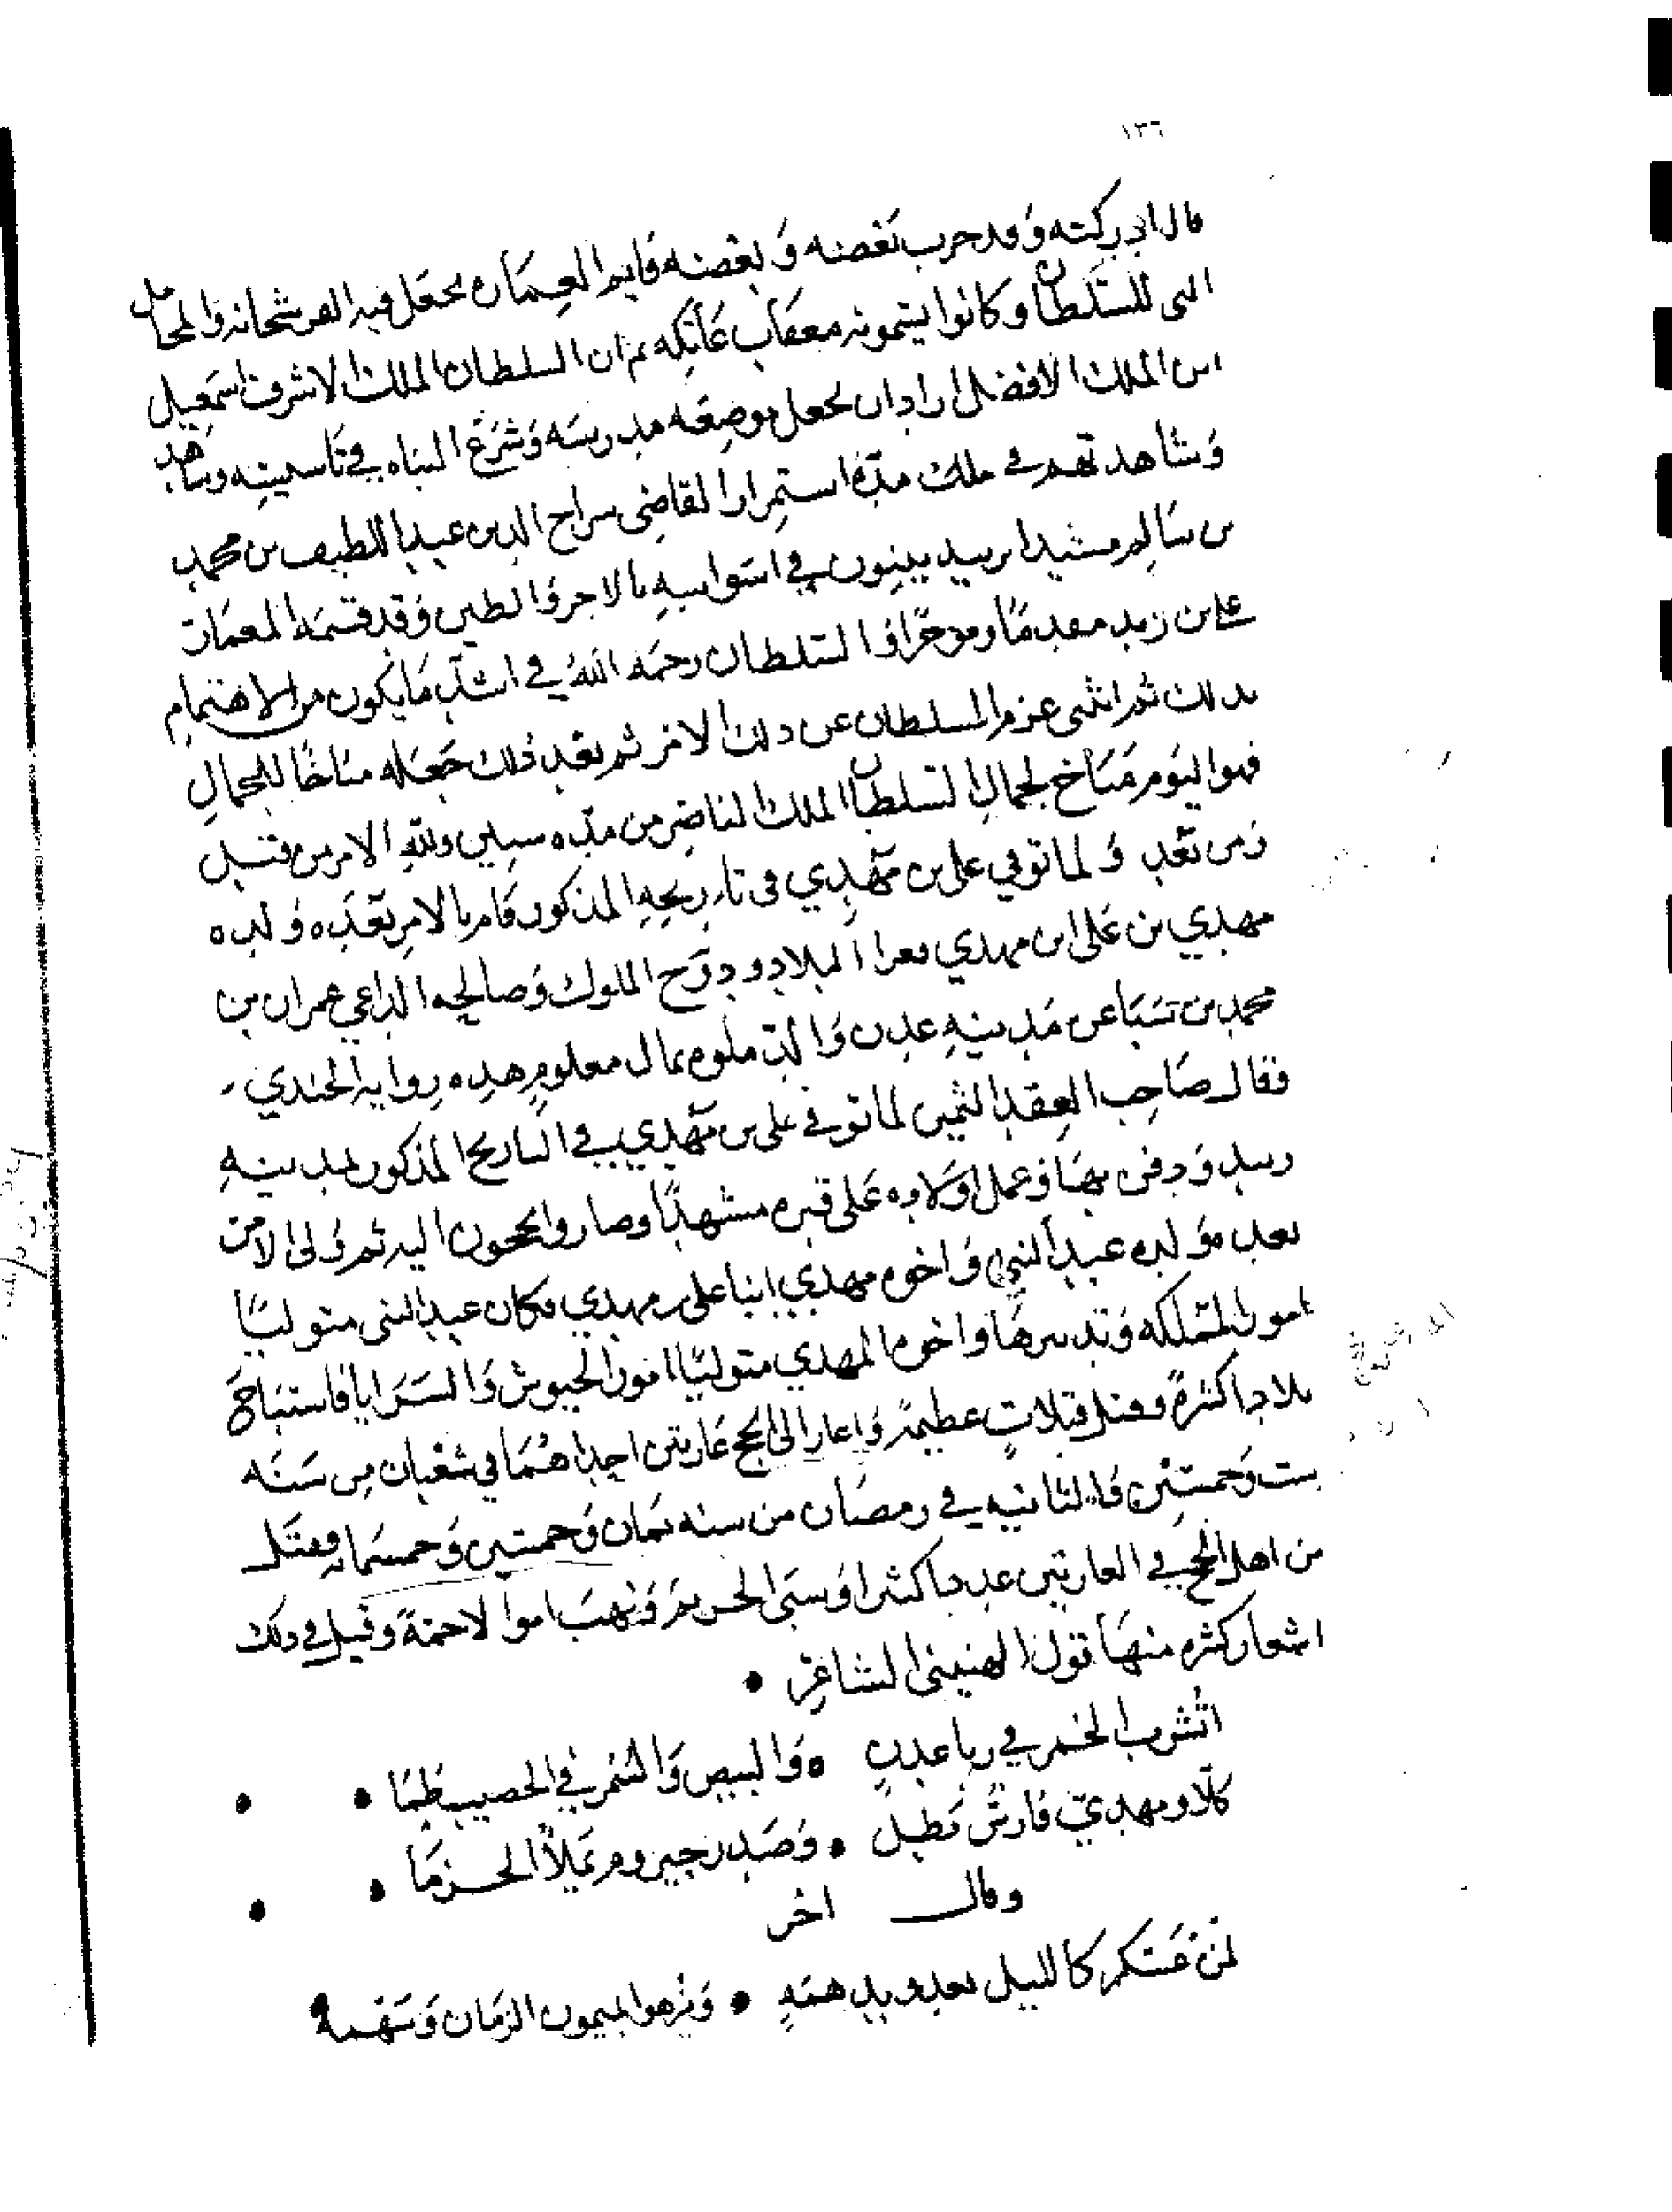 ١٣٦
قال ادركته وقد خرب بعضه وبعضه قايم العمارة يجعل فيه الفرشخانه والمحامل
التى للسلطان وكانوا يسمونه معقاب عاتكه ثم ان السلطان الملك الاشرف اسمعيل
ابن الملك الافضل اراد ان يجعل موضعه مدرسه وشرع البناه في تاسيسه وساهد
وشاهدتهم في ملك مدة استمرار القاضى سراج الدين عبد اللطيف بن محمد
بن سالم مشيدا بزبيد يبنون في اسوابه بالاجر والطين وقد قسمه المعمار
علي بن زيد مقدما وموخرا والسلطان رحمه الله في اشد ما يكون من الاهتمام
بذلك ثم انثنى عزم السلطان عن ذلك الامر ثم بعد ذلك جعله مناخا للجمال
فهو اليوم مناخ لجمال السلطان الملك الناصر من مده سنين ولله الامر من قبل
ومن بعد ولما توفي على بن مهدي فى تاريخه المذكور قام بالامر بعده ولده
مهدي بن على ابن مهدي فغزا البلاد ودوخ الملوك وصالحه الداعي عمران بن
محمد بن سبا عن مدينه عدن والدملوه بمال معلوم هذه روايه الجندي
فقال صاحب العقد الثمين لما توفي على بن مهدي في التاريخ المذكور بمدينه
زبيد ودفن بها وعمل اولاده على قبره مشهدا وصاروا يحجون اليه ثم ولى الامر
بعده ولده عبد النبي واخوه مهدي ابنا على بن مهدي فكان عبد النبى متوليا
امور المملكه وتدبيرها واخوه المهدي متوليا امور الجيوش والسرايا فاستباح
بلادا كثرة وقتل قتلات عظيمة واغار الى لحج غارتين احداهما في شعبان من سنه
ست وخمسين والثانيه في رمضان من سنه ثمان وخمسين وخمسمايه فقتل
من اهل لحج في الغارتين عددا كثيرا وسبى الحريم ونهب اموالا جمة وقيل في ذلك
اشعار كثره منها قول الهنينى الشاعر •
اتشرب الخمر في ربا عدن ه والبيض والسمر في الحصيب ظما •
كلا ومهدي فارس بطل • وصدر جيروم يملا الحزما •
وقال اخر
لمن عسكر كالليل يعدو بدهمه • ويزهو بميمون الزمان وسهمه